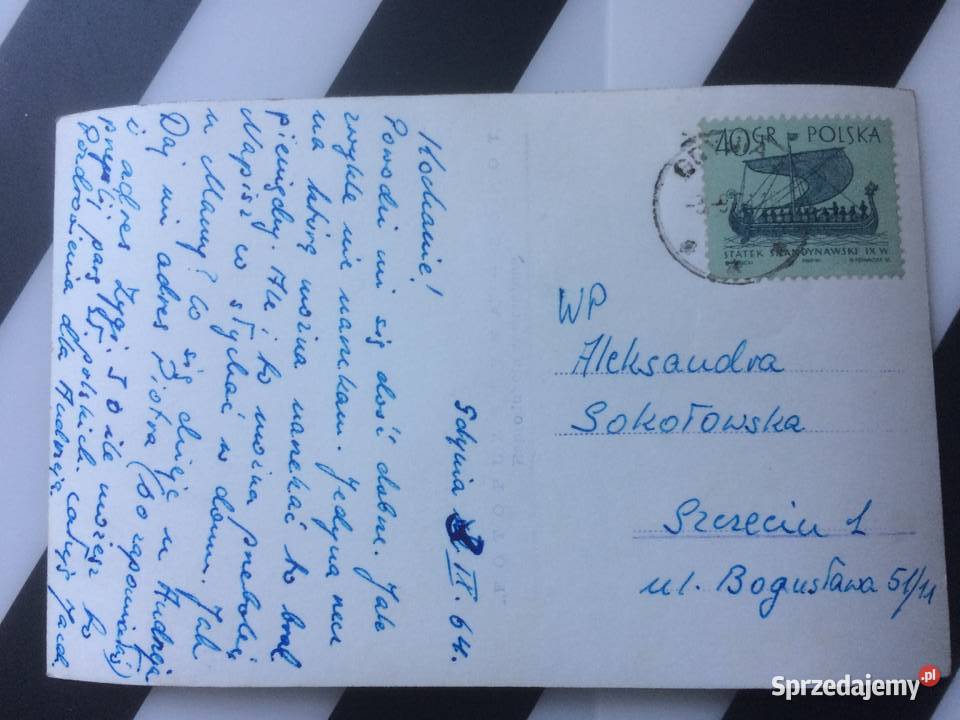 Gdynia 8 IX. 64.
Kochanie!
Powodzi mi się dość dobrze. Jak
zwykle nie narzekam. Jedyna rzecz
na którą można narzekać to brak
pieniędzy. Ale i to można przeboleć.
Napisz co słychać w domu. Jak
u Mamy? Co się dzieje u Andrzeja
Daj mi adres Piotra (bo zapomniałam)
i adres Zygi. I o ile możesz to
przyślij parę polskich.
Pozdrowienia dla Andrzeja. całuję Jacek
40GR POLSKA
STATEK SKANDYNAWSKI IX W
WP
Aleksandra
Sokołowska
Szczecin 1
ul. Bogusława 51/11
Sprzedajemy.pl